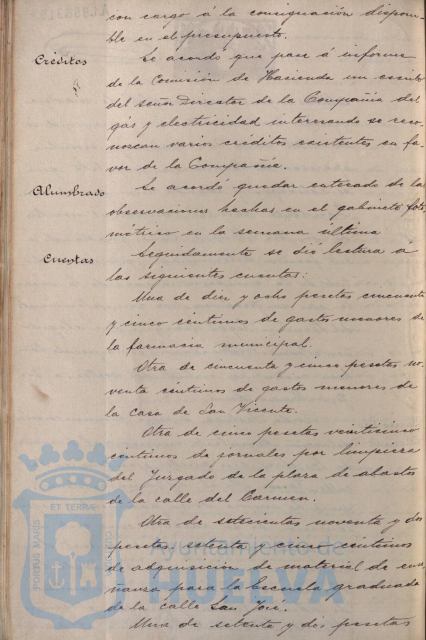 con cargo á la consignación disponi-
ble en el presupuesto.
Créditos
Se acordó que pase á informe
de la Comisión de Hacienda un escrito
del señor Director de la Compañia del
gás y electricidad interesando se reco-
nozcan varios créditos existentes en fa-
vor de la Compañía.
Alumbrado
Se acordó quedar enterado de las
observaciones hechas en el gabinete foto
métrico en la semana última
Cuentas
Seguidamente se dió lectura á
las siguientes cuentas:
Una de diez y ocho pesetas cincuenta
y cinco céntimos de gastos menores de
la farmacia municipal.
Otra de cincuenta y cinco pesetas no-
venta céntimos de gastos menores de
la casa de San Vicente.
Otra de cinco pesetas veinticinco
céntimos de jornales por limpieza
del Juzgado de la plaza de abastos
de la calle del Carmen.
Otra de setecientas noventa y dos
pesetas, setenta y cinco céntimos
de adquisición de material de ense
ñanza para la Escuela graduada
de la calle San José.
Una de setenta y dos pesetas
PORTUS MARIS ET TERRÆ
Ayuntamiento de
HUELVA